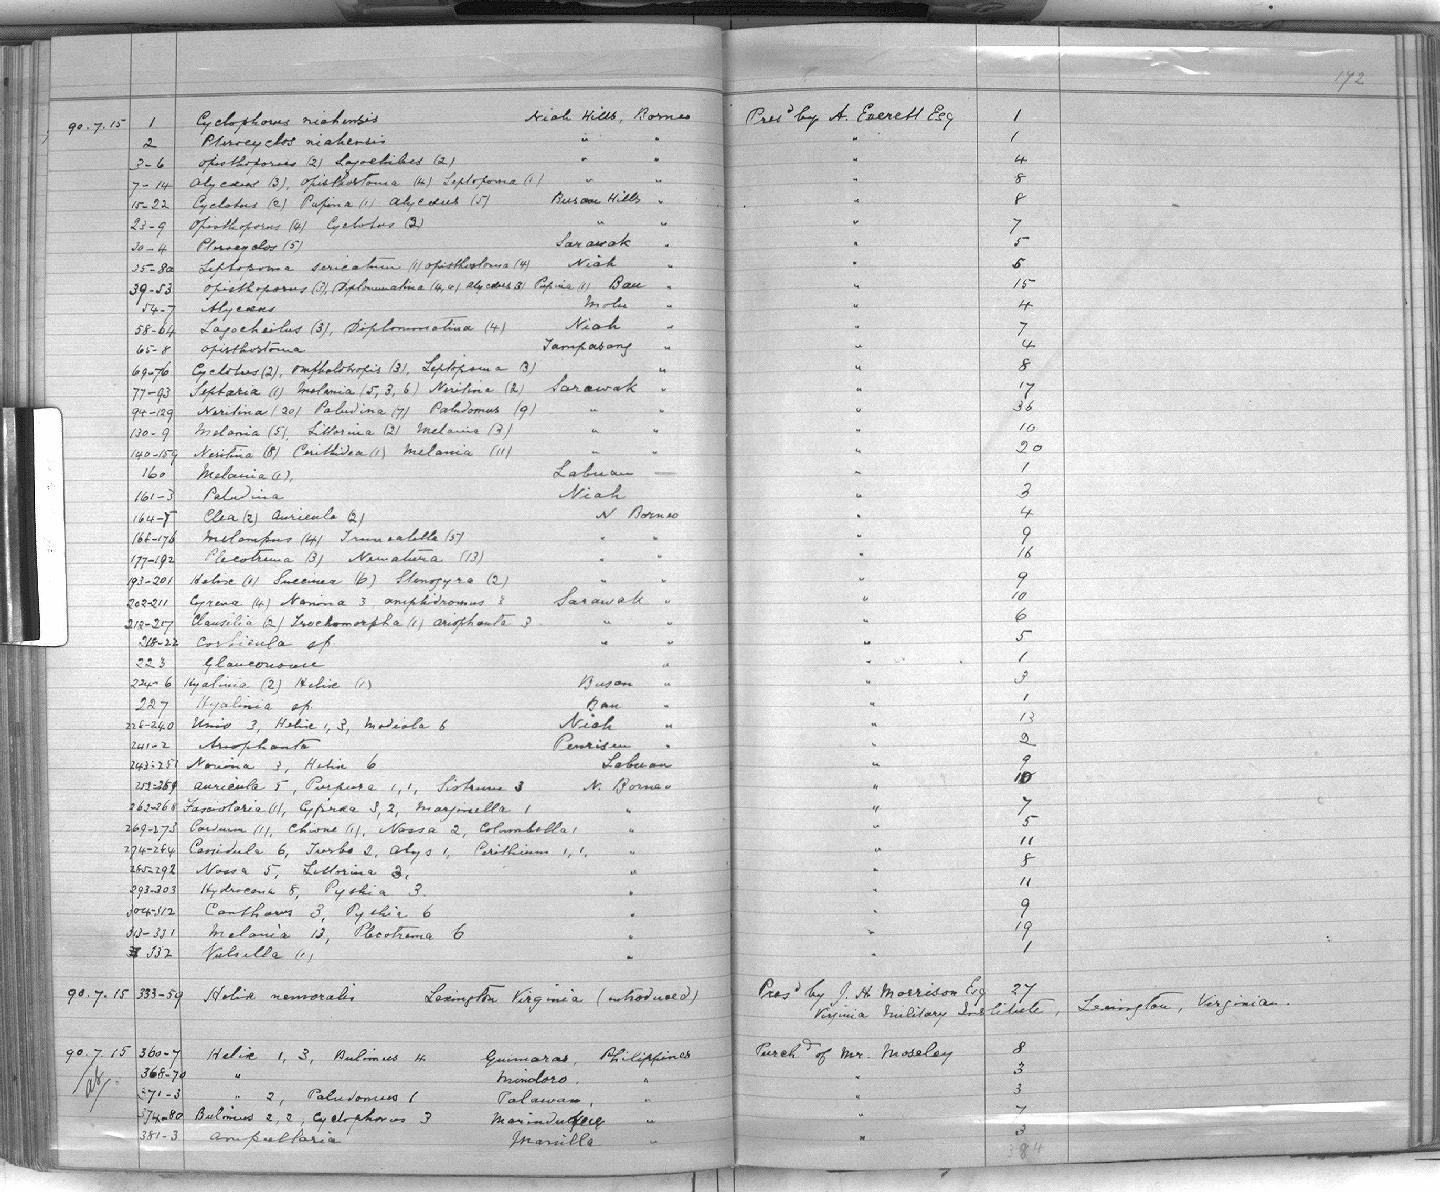 172
90.7.15 1 Cyclophorus niahensis Niah Hills, Borneo Presd by A. Everett Esq 1
2 Pterocyclos niahensis " " " 1
3-6 Opisthoporus (2) Lagocheilus (2) " " " 4
7-14 Alycaeus (3), Opisthostoma (4) Leptopoma (1) " " " 8
15-22 Cyclotus (2) Pupina (1) Alycaeus (5) Busau Hills " " 8
23-9 Opisthoporus (4) Cyclotus (3) " " " 7
30-4 Pterocyclos (5) Sarawak " " 5
35-8a Leptopoma sericatum (1) Opisthostoma (4) Niah " " 5
39-53 Opisthoporus Diplommatina Alycaeus Pupina (1) Bau " " 15
54-7 Alycaeus Molu " " 4
58-64 Lagocheilus (3), Diplommatina (4) Niah " " 7
65-8 Opisthostoma Tamparong " " 4
69-76 Cyclotus (2), Omphalotropis (3), Leptopoma (3) " " 8
77-93 Septaria (1) Melania (5, 3, 6) Neritina (2) Sarawak " " 17
94-129 Neritina (20) Paludina (7) Paludomus (9) " " " 36
130-9 Melania (5), Littorina (2) Melania (3) " " " 10
140-159 Neritina (8) Cerithidea (1) Melania (11) " " " 20
160 Melania (1), Labuan — " 1
161-3 Paludina Niah " 3
164-7 Clea (2) Auricula (2) N Borneo " 4
168-176 Melampus (4) Truncatella (5) " " " 9
177-192 Plecotrema (3) Nematura (13) " " " 16
193-201 Helix (1) Succinea (6) Stenogyra (2) " " " 9
202-211 Cyrena (4) Nanina 3, Amphidromus 3 Sarawak " " 10
212-217 Clausilia (2) Trochomorpha (1) Ariophanta 3 " " " 6
218-22 Corbicula sp. " " " 5
223 Glauconome " " 1
224-6 Hyalinia (2) Helix (1) Busau " " 3
227 Hyalinia sp. Bau " " 1
228-240 Unio 3, Helix 1, 3, Modiola 6 Niah " " 13
241-2 Ariophanta Penrisen " " 2
243-251 Nanina 3, Helix 6 Labuan " 9
252-261 Auricula 5, Purpura 1, 1, Sistrum 3 N. Borneo " 10
262-268 Fasciolaria (1), Cypraea 3, 2, Marginella 1 " " 7
269-273 Cardium (1), Chione (1), Nassa 2, Columbella 1 " " 5
274-284 Cassidula 6, Turbo 2, Atys 1, Cerithium 1, 1, " " 11
285-292 Nassa 5, Littorina 3, " " 8
293-303 Hydrocena 8, Pythia 3. " " 11
304-312 Cantharus 3, Pythia 6 " " 9
313-331 Melania 13, Plecotrema 6 " " 19
332 Vulsella (1) " " 1
90.7.15 333-59 Helix nemoralis Lexington Virginia (introduced) Presd by J. H. Morrison Esq 27
Virginia Military Institute, Lexington, Virginian.
90.7.15 360-7 Helix 1, 3, Bulimus 4 Guimaras, Philippines Purchd of Mr. Moseley 8
368-70 " Mindoro, " " 3
371-3 " 2, Paludomus 1 Palawan, " " 3
374-80 Bulimus 2, 2, Cyclophorus 3 Marinduque " " 7
381-3 Ampullaria Manilla " " 3
384